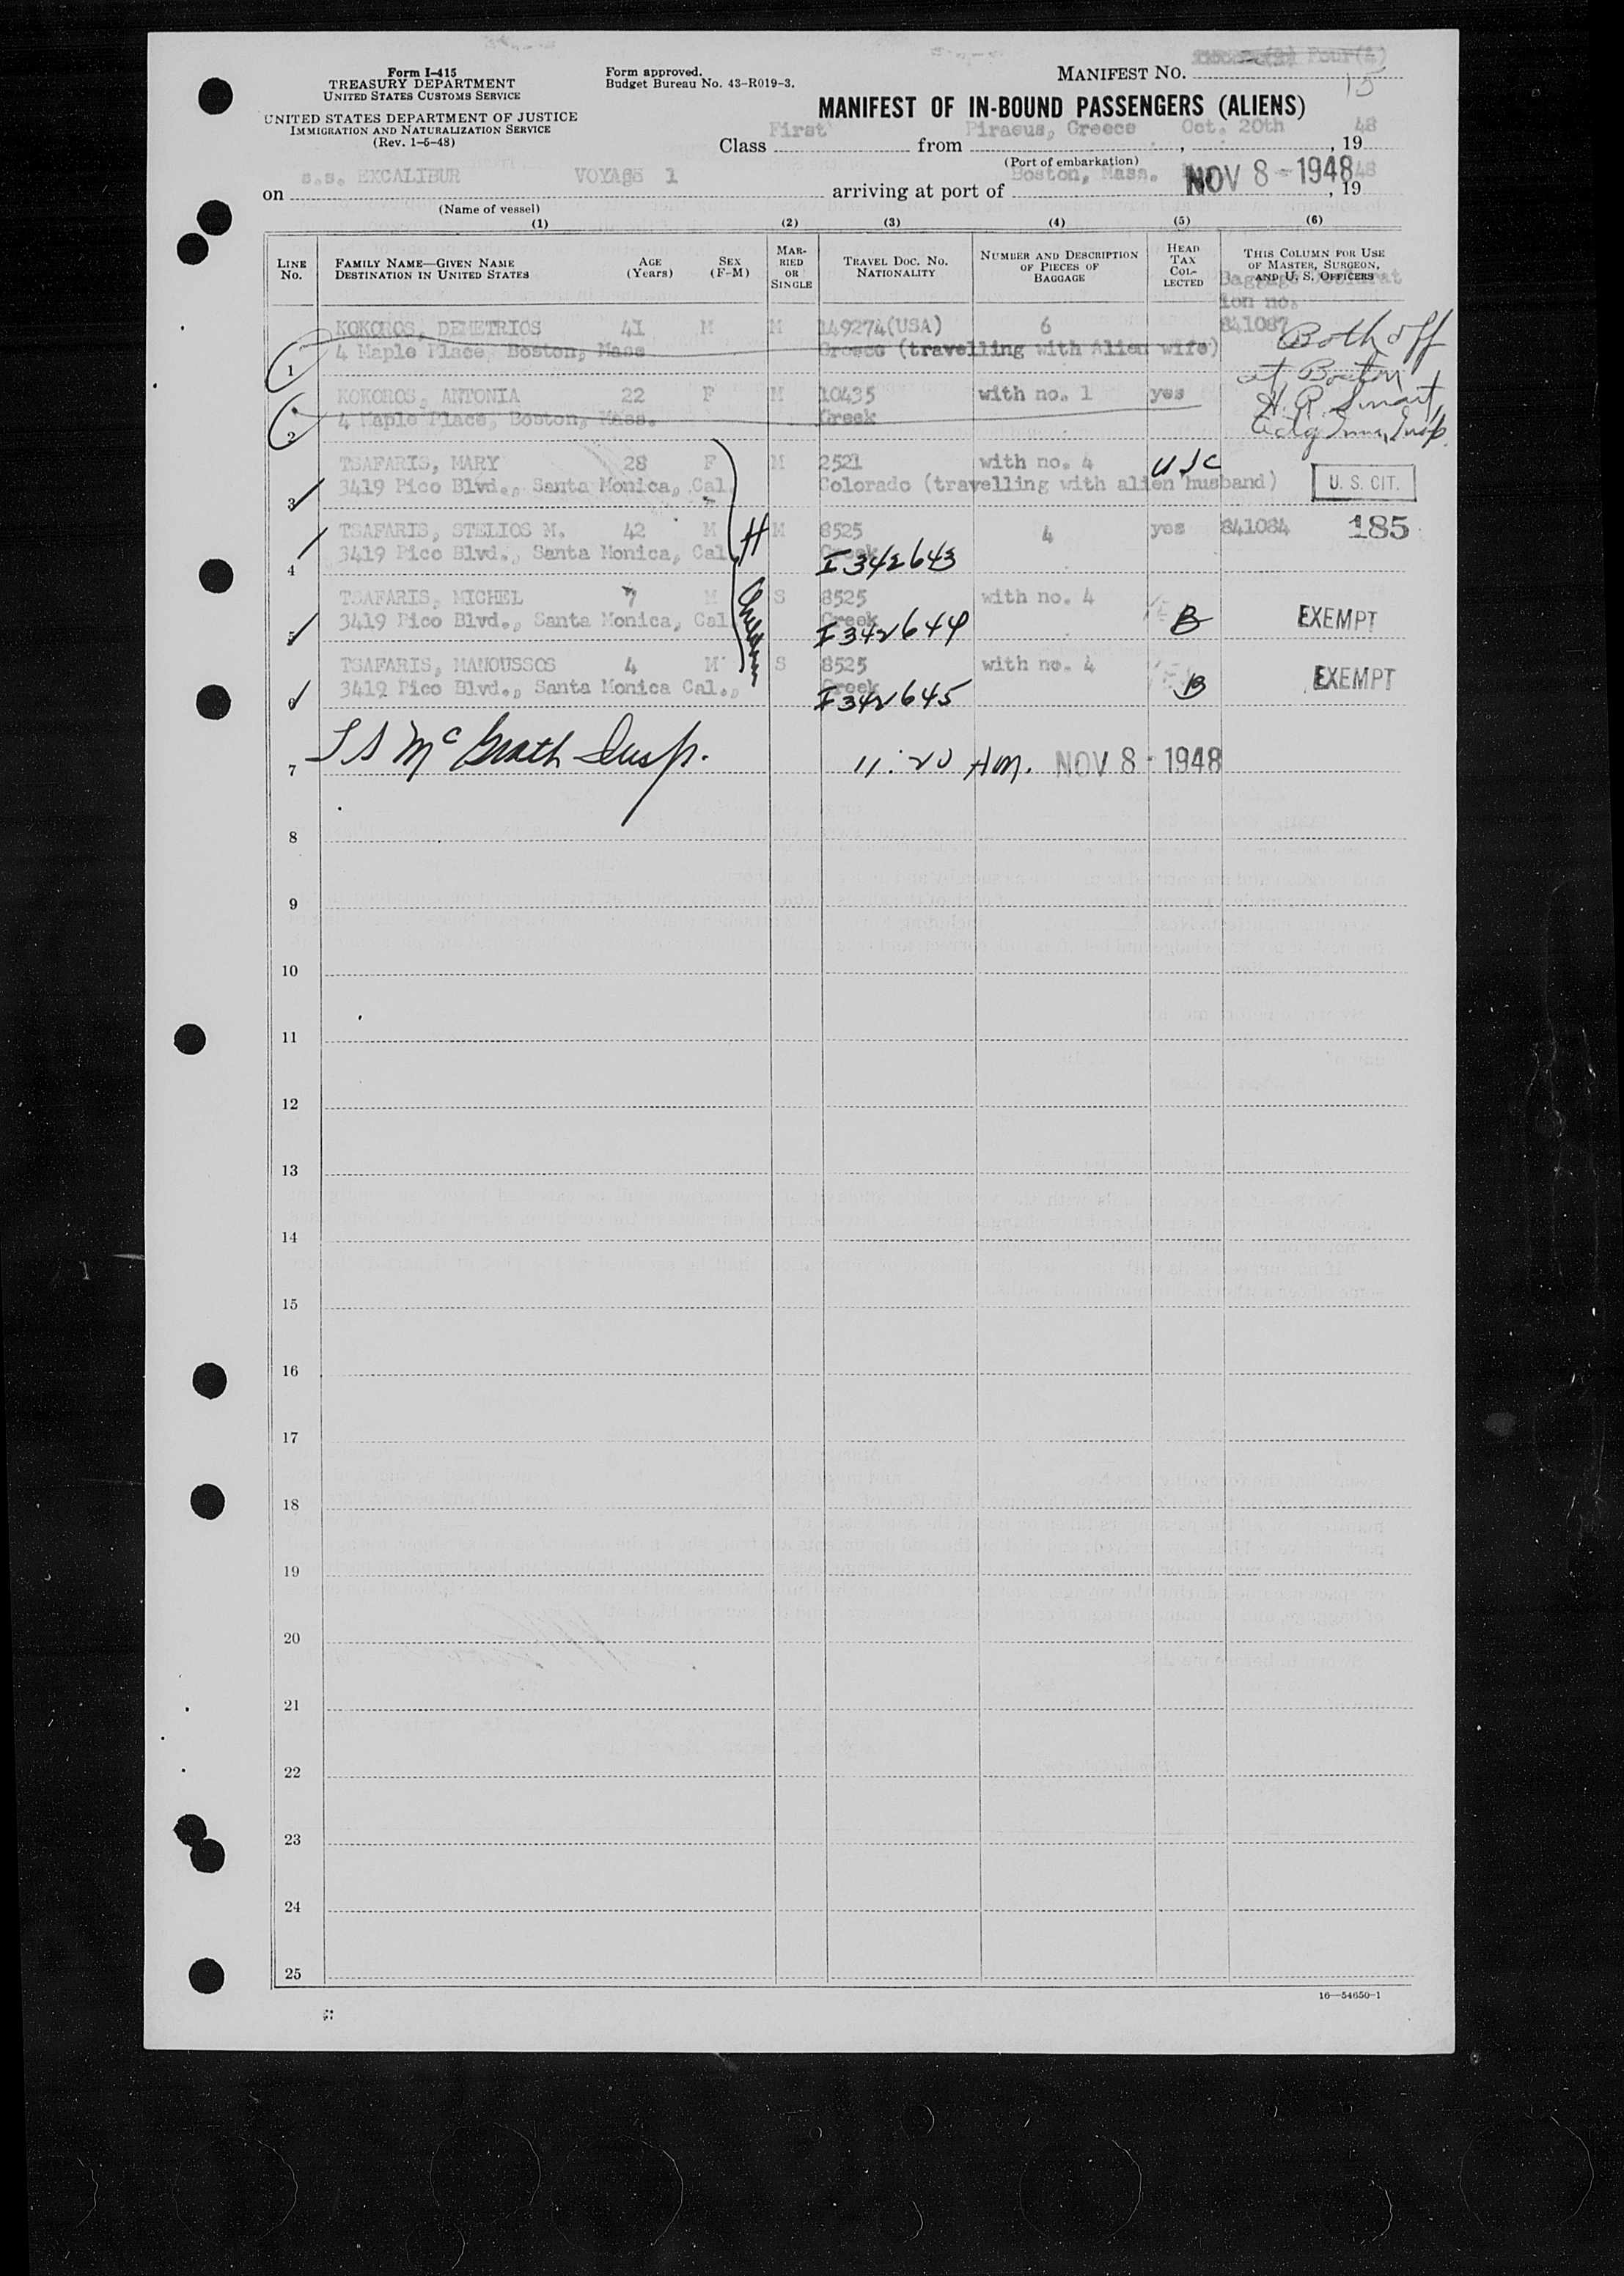 Form I-415
TREASURY DEPARTMENT
UNITED STATES CUSTOMS SERVICE
UNITED STATES DEPARTMENT OF JUSTICE
IMMIGRATION AND NATURALIZATION SERVICE
(Rev. 1-5-48)
Form approved.
Budget Bureau No. 43-R019-3.
MANIFEST NO. Four(4)
15
MANIFEST OF IN-BOUND PASSENGERS (ALIENS)
Class First from Piraeus, Greece, Oct. 20th, 1948
(Port of embarkation)
on s.s. EXCALIBUR VOYAGE 1 arriving at port of Boston, Mass. NOV 8 - 1948, 1948
(Name of vessel)
(1) (2) (3) (4) (5) (6)
LINE NO. FAMILY NAME—GIVEN NAME DESTINATION IN UNITED STATES AGE (Years) SEX (F-M) MARRIED OR SINGLE TRAVEL DOC. NO. NATIONALITY NUMBER AND DESCRIPTION OF PIECES OF BAGGAGE HEAD TAX COLLECTED THIS COLUMN FOR USE OF MASTER, SURGEON, AND U. S. OFFICERS
Baggage Declarat
ion no.
KOKOROS, DEMETRIOS 41 M M 149274(USA) 6 841087 Both off
1 4 Maple Place, Boston, Mass Greece (travelling with Alien wife)
at Boston
KOKOROS, ANTONIA 22 F M 10435 with no. 1 yes H. R. Smart
2 4 Maple Place, Boston, Mass. Greek Actg Imm. Insp.
TSAFARIS, MARY 28 F M 2521 with no. 4 USC
3 3419 Pico Blvd., Santa Monica, Cal. Colorado (travelling with alien husband) U. S. CIT.
TSAFARIS, STELIOS M. 42 M H M 8525 4 yes 841084 185
4 3419 Pico Blvd., Santa Monica, Cal. Greek I 342643
TSAFARIS, MICHEL 7 M S 8525 with no. 4
5 3419 Pico Blvd., Santa Monica, Cal Children Greek I 342644 B EXEMPT
TSAFARIS, MANOUSSOS 4 M S 8525 with no. 4
6 3419 Pico Blvd., Santa Monica Cal., Greek I 342645 B EXEMPT
7 McGrath Insp. 11:20 Am. NOV 8 - 1948
8
9
10
11
12
13
14
15
16
17
18
19
20
21
22
23
24
25
16—54650-1